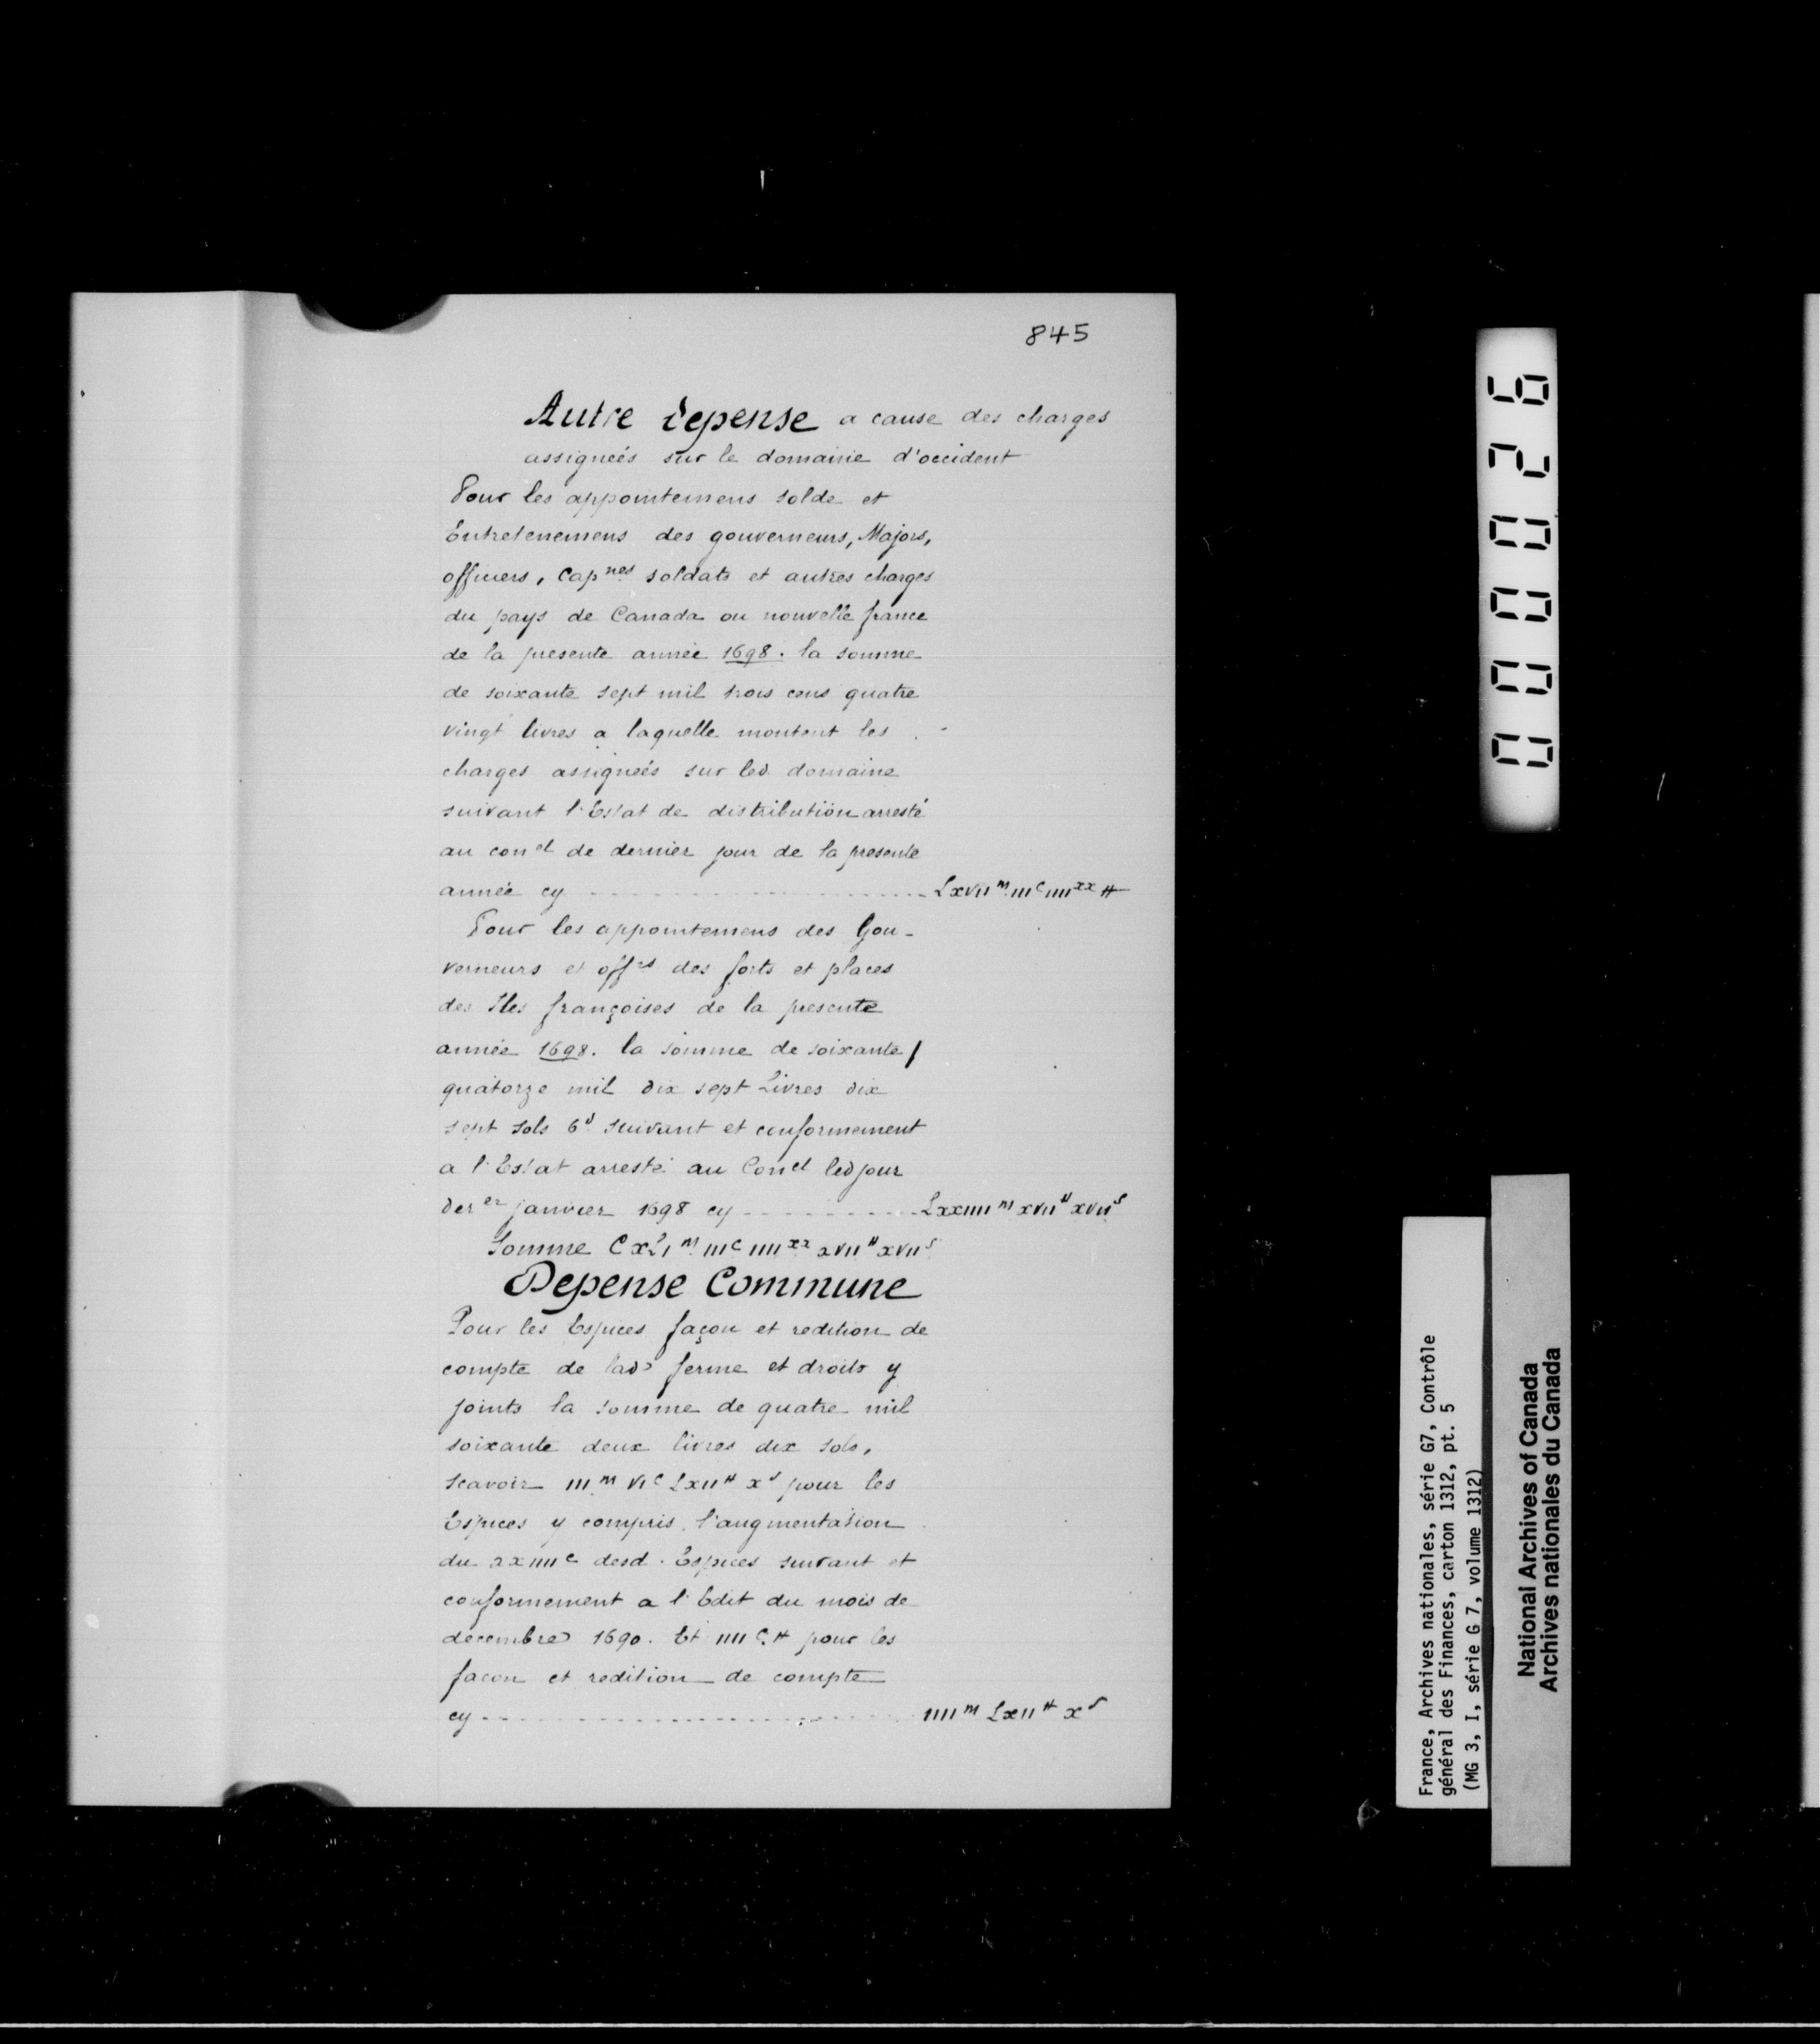 845
Autre depense a cause des charges
assigneés sur le domaine d'occident
Pour les appointemens solde et
Entretenemens des gouverneurs, Majors,
officiers, Capnes soldats et autres charges
du pays de Canada ou nouvelle france
de la presente année 1698. la somme
de soixante sept mil trois cens quatre
vingt livres a laquelle montent les
charges assigneés sur led. domaine
suivant l'Estat de distribution arresté
au conel de dernier jour de la presente
année cy Lxvii m. iii c iiii xx #
Pour les appointemens des Gou-
verneurs et offrs des forts et places
des Iles françoises de la presente
année 1698. la somme de soixante /
quatorze mil dix sept Livres dix
sept sols 6d suivant et conformement
a l'Estat arresté au Conel led jour
der er janvier 1698 cy Lxxiiii m xvii # xvii s
Somme C xLi m iii c iiii xx xvii # xvii s
Depense Commune
Pour les Espices façon et redition de
compte de lad. ferme et droits y
joints la somme de quatre mil
soixante deux livres dix sols,
scavoir iii m vi c Lxii # x s pour les
Espices y compris l'augmentation
du xxiiii e desd. Espices suivant et
conformement a l'Edit du mois de
decembre 1690. Et iiii c. # pour les
facon et redition de compte
cy iiii m Lxii # x s
000026
France, Archives nationales, série G7, Contrôle
général des Finances, carton 1312, pt. 5
(MG 3, I, série G 7, volume 1312)
National Archives of Canada
Archives nationales du Canada